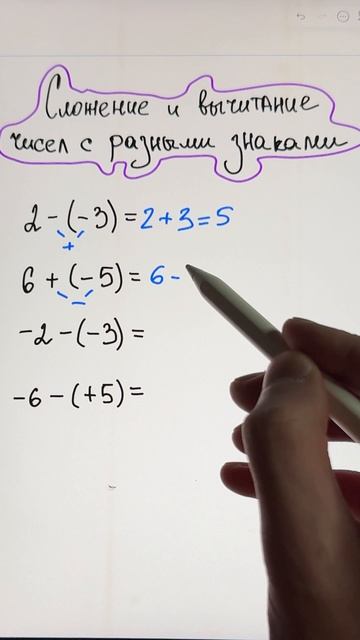 Сложение и вычитание
чисел с разными знаками
2 - (-3) = 2 + 3 = 5
+
6 + (-5) = 6 -
-
-2 - (-3) =
-6 - (+5) =